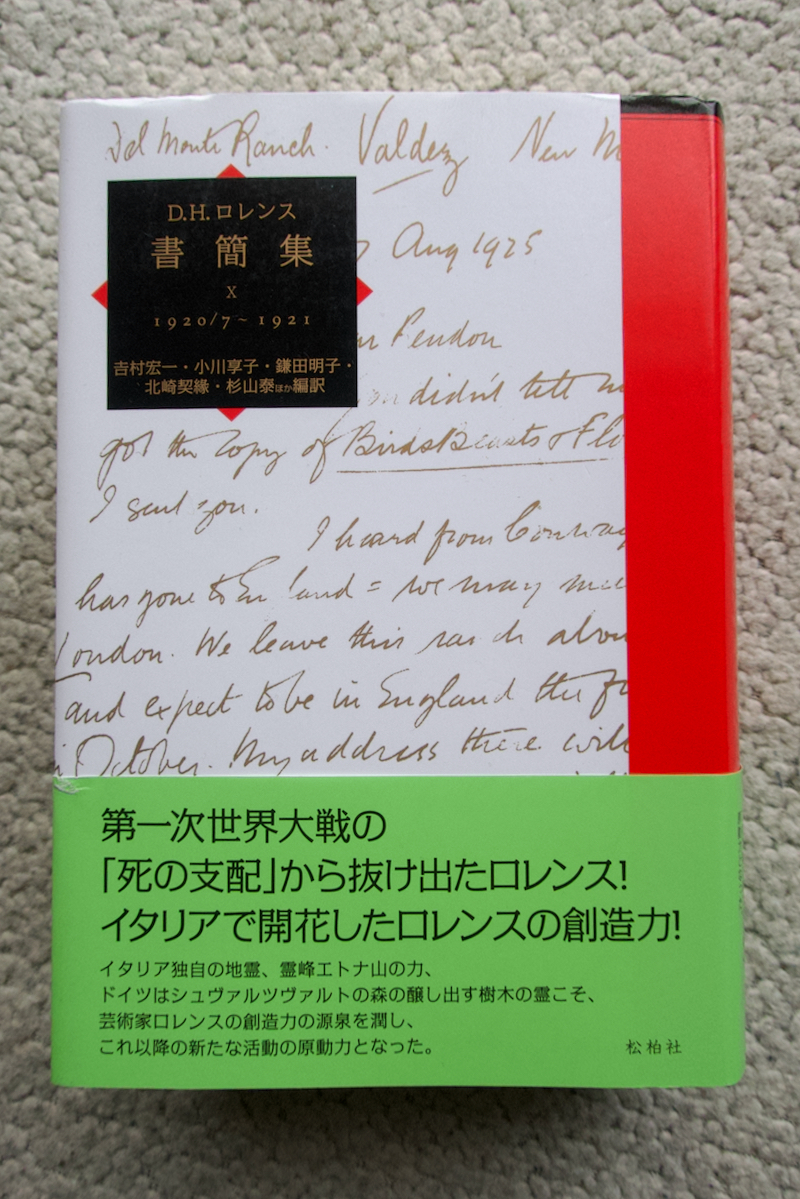 Del Monte Ranch. Valdez New M
D.H.ロレンス
書簡集
X
1920/7~1921
吉村宏一・小川享子・鎌田明子・
北崎契縁・杉山泰ほか編訳
Aug 1925
Pendon
didn't tell
got the copy of Birds Beasts & Flo
I sent you.
I heard from Conway
has gone to England = we may
London. We leave this ranch abou
and expect to be in England the
October. My address there will
第一次世界大戦の
「死の支配」から抜け出たロレンス!
イタリアで開花したロレンスの創造力!
イタリア独自の地霊、霊峰エトナ山の力、
ドイツはシュヴァルツヴァルトの森の醸し出す樹木の霊こそ、
芸術家ロレンスの創造力の源泉を潤し、
これ以降の新たな活動の原動力となった。
松柏社